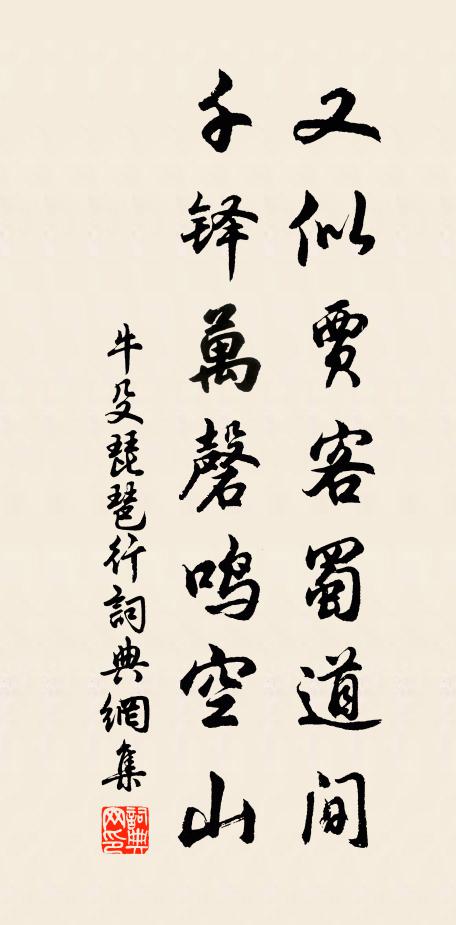 又似賈客蜀道间
千铎萬磬鸣空山
牛殳琵琶行詞典網集
詞典
网印